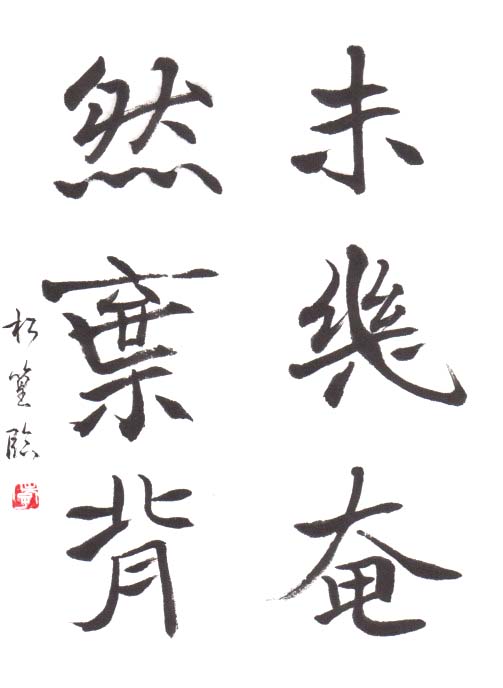 未幾奄
然棄背
松篁臨